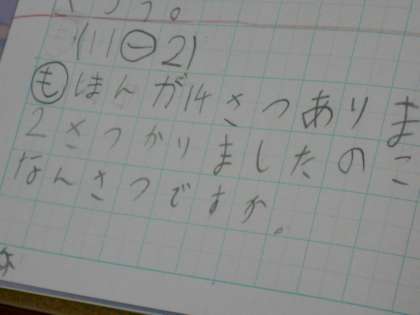 (11-2)
も ほんが14さつありま
2さつかりましたのこ
なんさつですか。